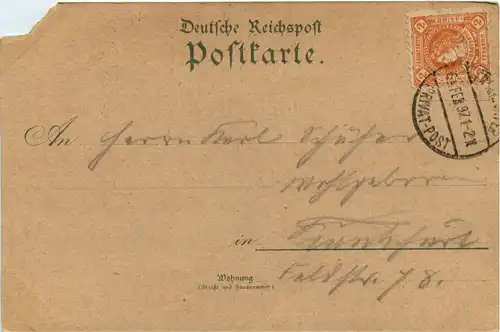 Deutsche Reichspost
Postkarte.
PRIVAT-POST
FEB 97 1-2N
An Herrn Karl Schäfer
Wohlgeboren
in Frankfurt
Feldstr. 78.
Wohnung
(Straße und Hausnummer)